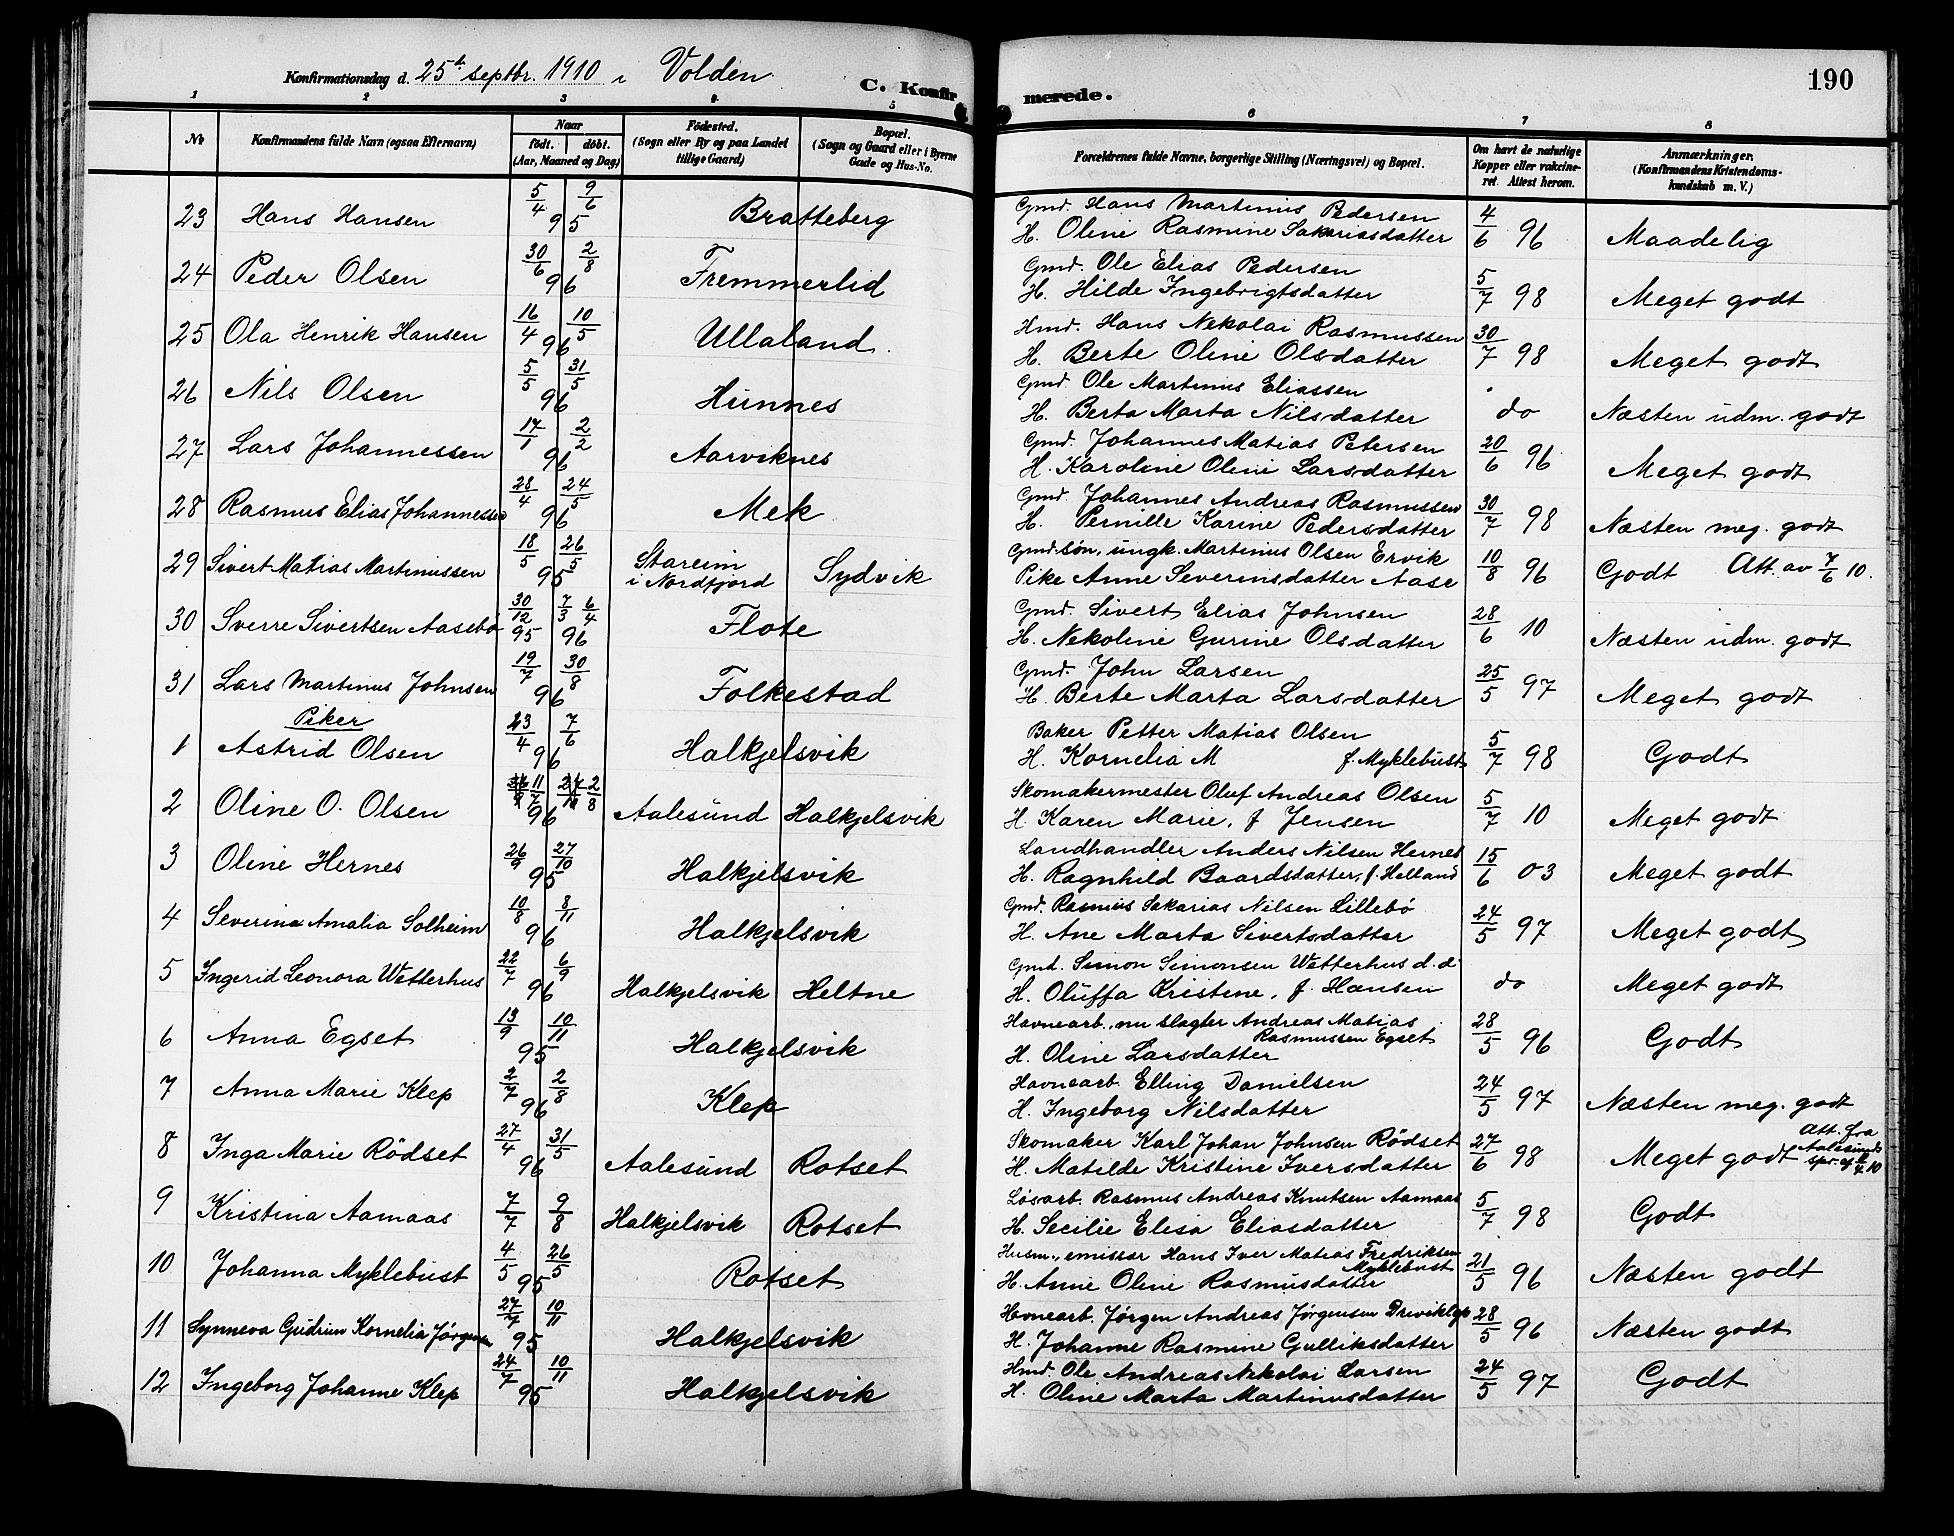 Konfirmationsdag d. 25de septbr. 1910 i Volden
C. Konfirmerede.
190
1 2 3 4 5 6 7 8
No Konfirmandens fulde Navn (ogsaa Efternavn) Naar født. døbt. (Aar, Maaned og Dag) Fødested. (Sogn eller By og paa Landet tillige Gaard) Bopæl. (Sogn og Gaard eller i Byerne Gade og Hus-No. Forældrenes fulde Navne, borgerlige Stilling (Næringsvei) og Bopæl. Om havt de naturlige Kopper eller vakcineret. Attest herom. Anmærkninger. (Konfirmandens Kristendomskundskab m. V.)
23 Hans Hansen 5/4 9/6 95 Bratteberg Gmd. Hans Martinus Pedersen 4/6 96 Maadelig
H. Oline Rasmine Sakariasdatter
24 Peder Olsen 30/6 2/8 96 Fremmerlid Gmd. Ole Elias Pedersen 5/7 98 Meget godt
H. Hilde Ingebrigtsdatter
25 Ola Henrik Hansen 16/4 10/5 96 Ullaland Hmd. Hans Nekolai Rasmussen 30/7 98 Meget godt
H. Berte Oline Olsdatter
26 Nils Olsen 5/5 31/5 96 Hunnes Gmd. Ole Martinus Eliassen do Næsten udm. godt
H. Berta Marta Nilsdatter
27 Lars Johannessen 17/1 2/2 96 Aarviknes Gmd. Johannes Matias Petersen 20/6 96 Meget godt
H. Karoline Oline Larsdatter
28 Rasmus Elias Johannessen 28/4 24/5 96 Mek Gmd. Johannes Andreas Rasmussen 30/7 98 Næsten meg. godt
H. Pernille Karine Pedersdatter
29 Sivert Matias Martinussen 18/5 26/5 95 Stareim i Nordfjord Sydvik Gmd.søn, ungk. Martinus Olsen Ervik 10/8 96 Godt Att. av 7/6 10.
Pike Anne Severinsdatter Aase
30 Sverre Sivertsen Aasebø 30/12 95 7/3 6/4 96 Flote Gmd. Sivert Elias Johnsen 28/6 10 Næsten udm. godt
H. Nekoline Gurine Olsdatter
31 Lars Martinus Johnsen 19/7 30/8 96 Folkestad Gmd. John Larsen 25/5 97 Meget godt
H. Berte Marta Larsdatter
Piker
1 Astrid Olsen 23/4 7/6 96 Halkjelsvik Baker Petter Matias Olsen 5/7 98 Godt
H. Kornelia M f. Myklebust
2 Oline O. Olsen 11/7 2/8 96 Aalesund Halkjelsvik Skomakermester Oluf Andreas Olsen 5/7 10 Meget godt
H Karen Marie, f Jensen
3 Oline Hernes 26/9 27/10 95 Halkjelsvik Landhandler Anders Nilsen Hernes 15/6 03 Meget godt
H. Ragnhild Baardsdatter, f. Helland
4 Severina Amalia Solheim 10/8 8/11 96 Halkjelsvik Gmd. Rasmus Sakarias Nilsen Lillebø 24/5 97 Meget godt
H. Ane Marta Sivertsdatter
5 Ingerid Leonora Wetterhus 22/7 6/9 96 Halkjelsvik Heltne Gmd. Simon Simonsen Wetterhus d.d. do Meget godt
H. Oluffa Kristine, f. Hansen
6 Anna Egset 13/9 10/11 95 Halkjelsvik Havnearb., nu slagter Andreas Matias 28/5 96 Godt
Rasmussen Egset
H. Oline Larsdatter
7 Anna Marie Klep 2/7 2/8 96 Klep Havnearb. Elling Danielsen 24/5 97 Næsten meg. godt
H. Ingeborg Nilsdatter
8 Inga Marie Rødset 27/4 31/5 96 Aalesund Rotset Skomaker Karl Johan Johnsen Rødset 27/6 98 Meget godt Att. fra Aalesunds
H. Matilde Kristine Iversdatter
9 Kristina Aamaas 7/7 9/8 Halkjelsvik Rotset Løsarb. Rasmus Andreas Knutsen Aamaas 5/7 98 Godt
H. Secilie Elisa Eliasdatter
10 Johanna Myklebust 4/5 26/5 95 Rotset Husm., emissær Hans Iver Matias Fredriksen 21/5 96 Næsten godt
Myklebust
H. Anne Oline Rasmusdatter
11 Synneva Gudrun Kornelia Jørgensen 27/7 10/11 95 Halkjelsvik Havnearb. Jørgen Andreas Jørgensen Driviklep 28/5 96 Næsten godt
H. Johanne Rasmine Gulliksdatter
12 Ingeborg Johanne Klep 24/7 10/11 95 Halkjelsvik Hmd. Ole Andreas Nekolai Larsen 24/5 97 Godt
H. Oline Marta Martinusdatter